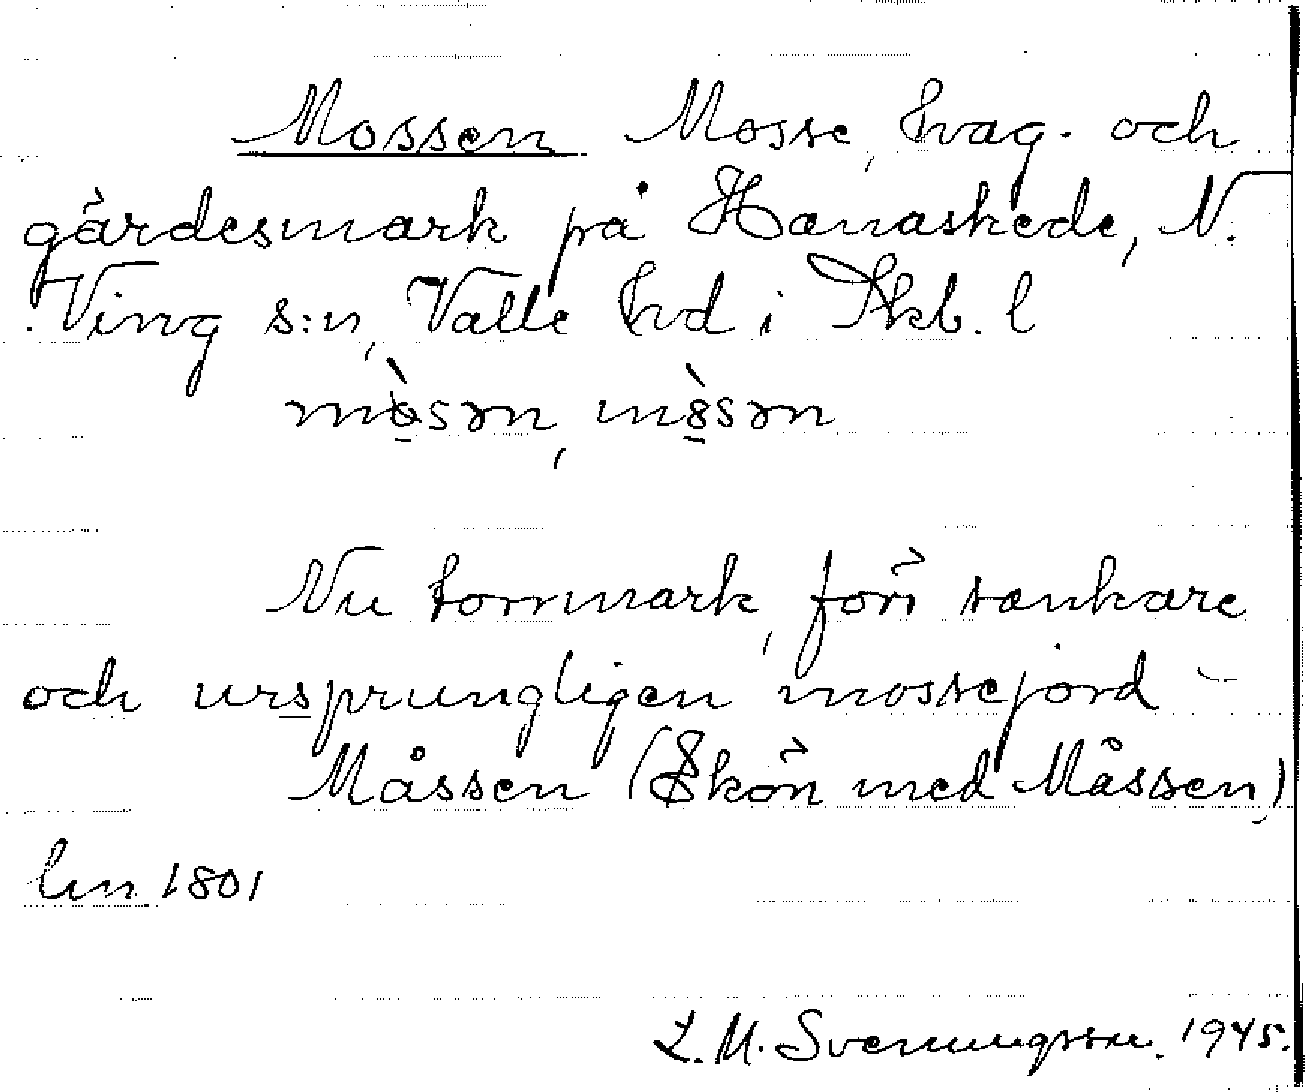 Mossen Mosse, hvag. och
gärdesmark på Hanaskede, N.
Ving s:n, Valle hd i Skb. l
Nu torrmark, förr sankare
och ursprungligen mossejord
Måssen (Skön med Måssen)
lm 1801
L. M. Svenungsson. 1945.